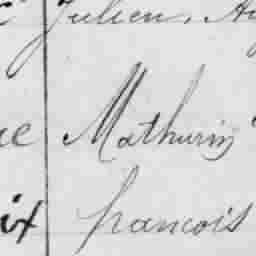 Julien, Au
Mathurin
ix francois